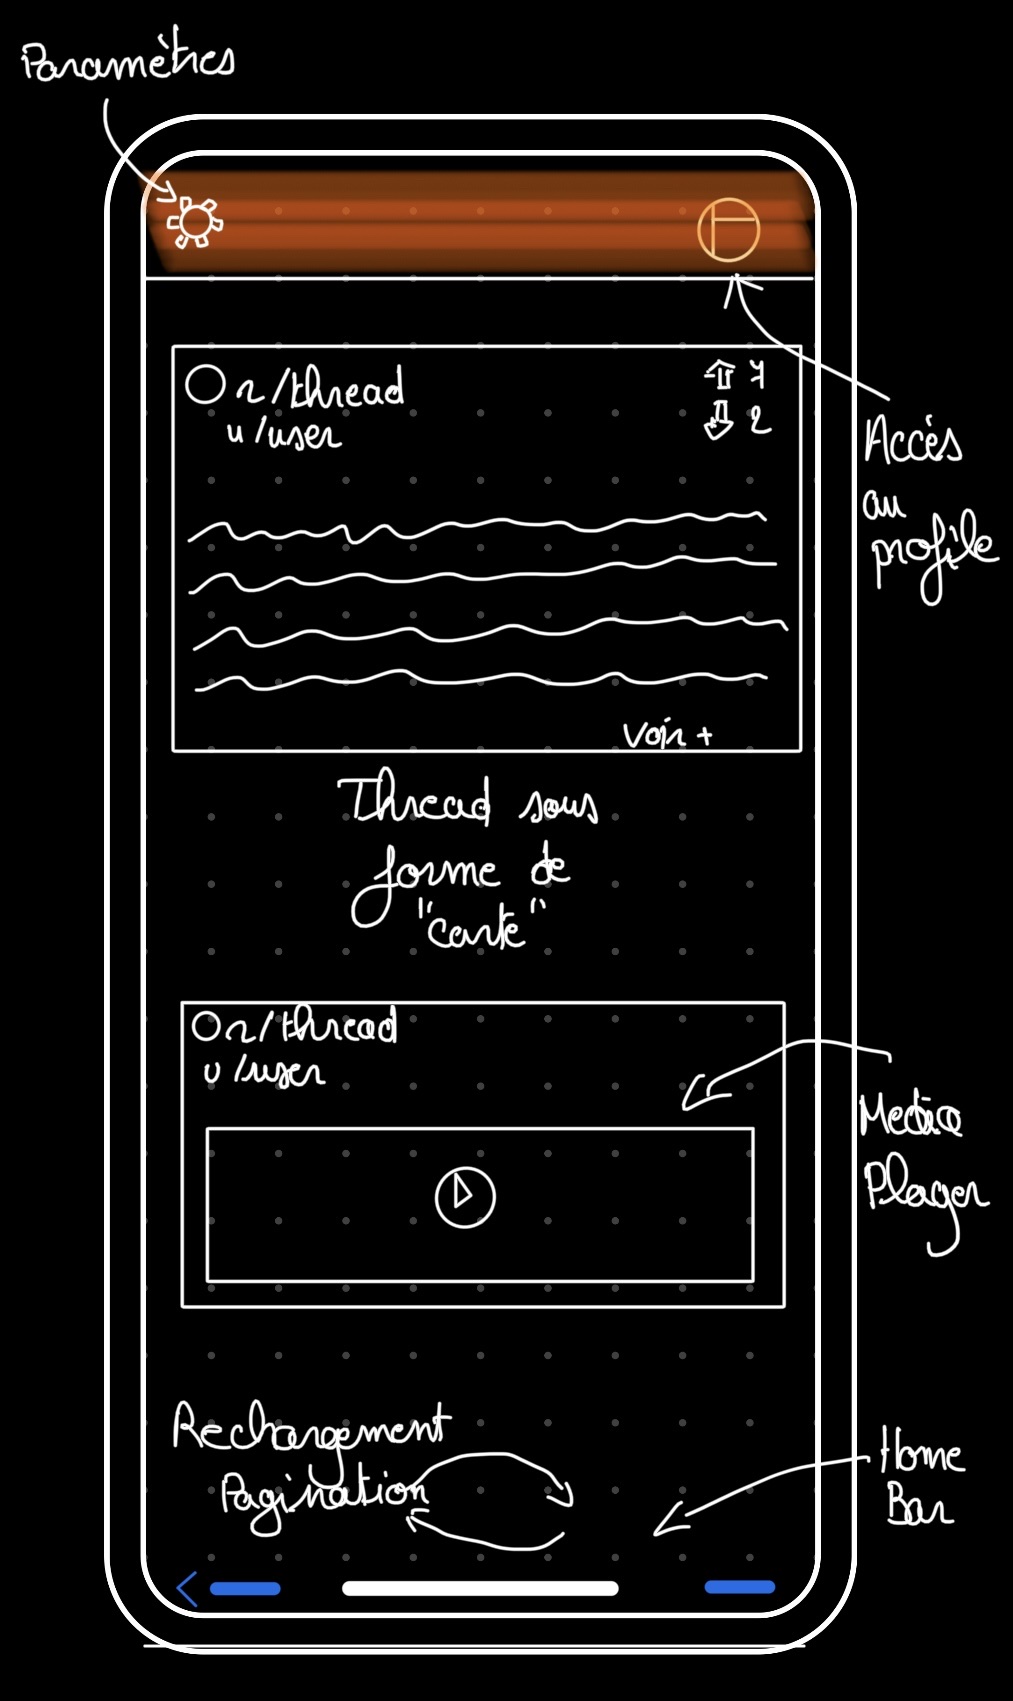 Paramètres
r/thread
u/user
7
2
Voir +
Accès
au
profile
Thread sous
forme de
"carte"
r/thread
u/user
Media
Player
Rechargement
Pagination
Home
Bar